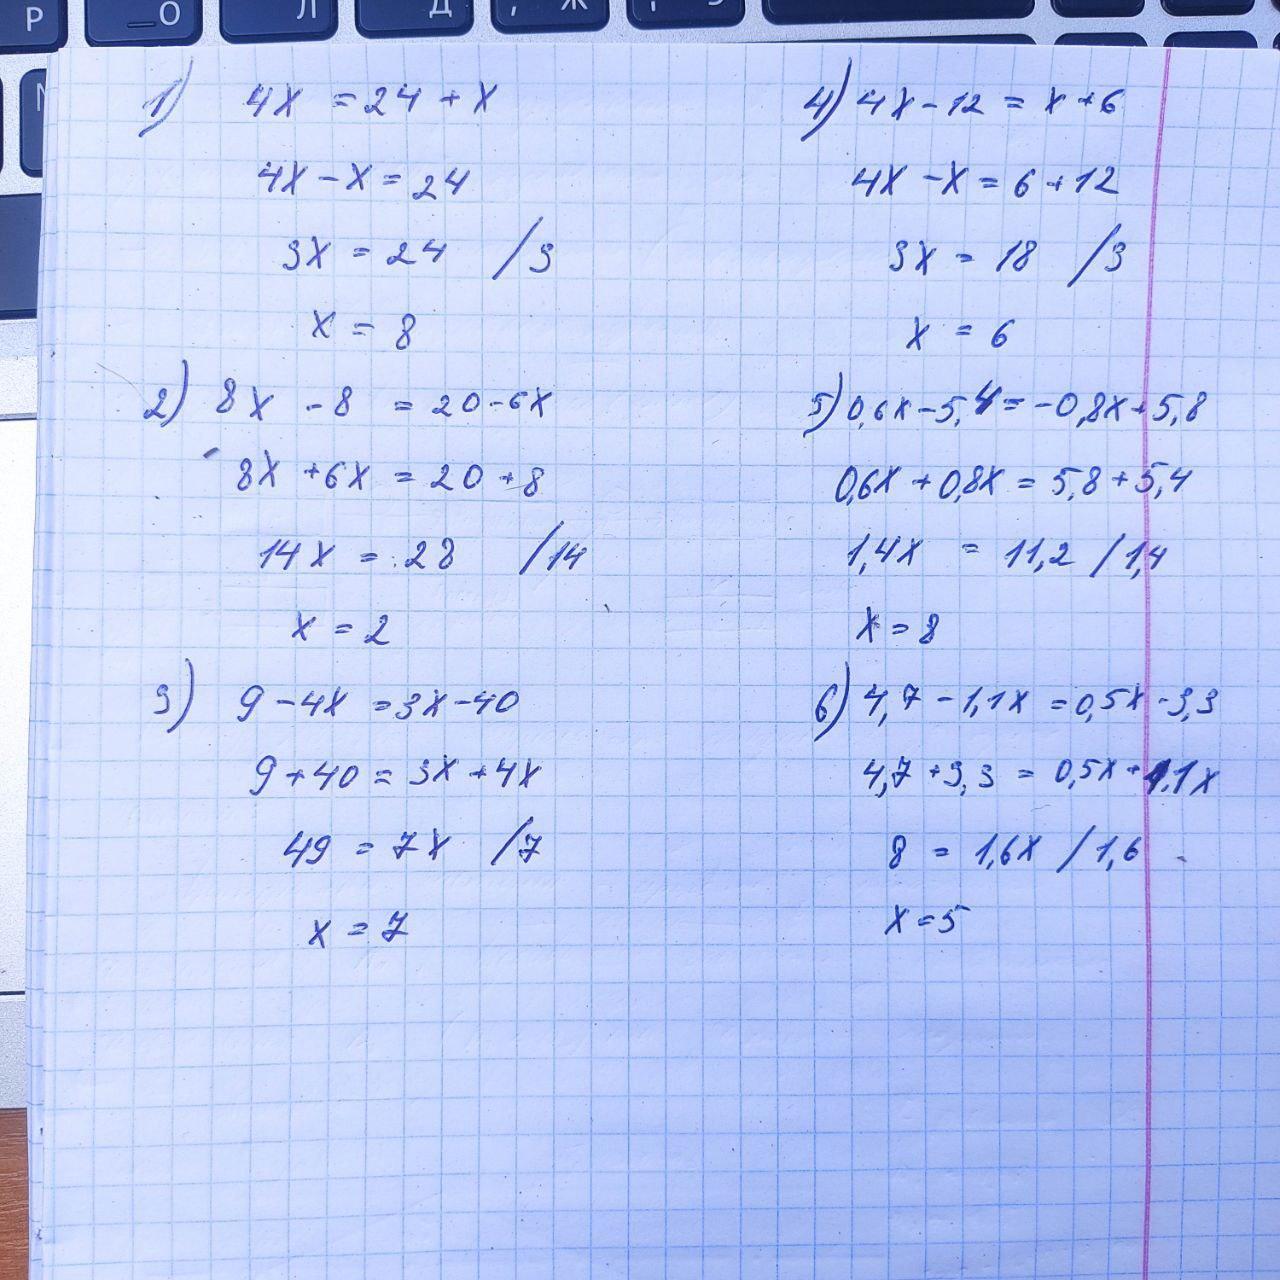 Р
_О
Л
Д
Ж
1) 4x = 24 + x
4x - x = 24
3x = 24 /3
x = 8
2) 8x - 8 = 20 - 6x
8x + 6x = 20 + 8
14x = 28 /14
x = 2
3) 9 - 4x = 3x - 40
9 + 40 = 3x + 4x
49 = 7x /7
x = 7
4) 4x - 12 = x + 6
4x - x = 6 + 12
3x = 18 /3
x = 6
5) 0,6x - 5,4 = -0,8x + 5,8
0,6x + 0,8x = 5,8 + 5,4
1,4x = 11,2 /1,4
x = 8
6) 4,7 - 1,1x = 0,5x - 3,3
4,7 + 3,3 = 0,5x + 1,1x
8 = 1,6x /1,6
x = 5